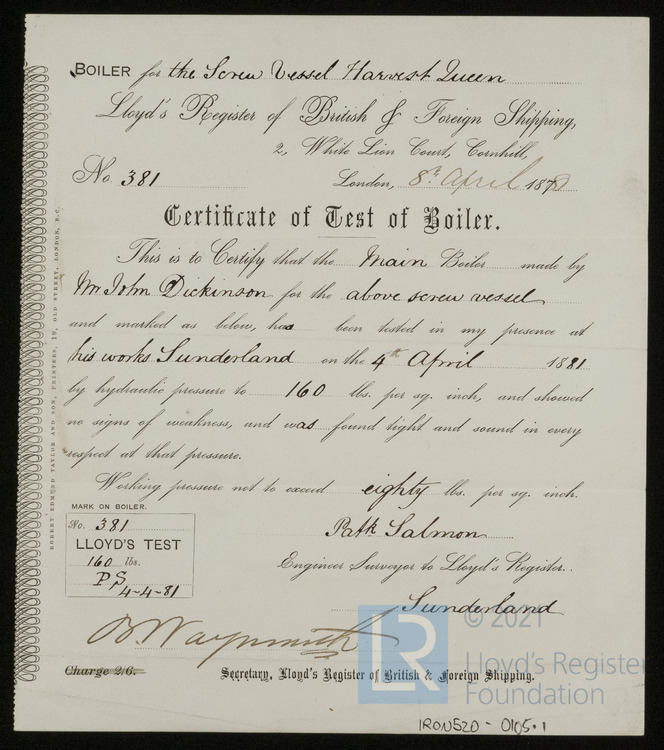 BOILER for the Screw Vessel Harvest Queen
Lloyd's Register of British & Foreign Shipping,
2, White Lion Court, Cornhill,
No. 381
London, 8th April 18
Certificate of Test of Boiler.
This is to Certify that the Main Boiler made by
Mr John Dickinson for the above screw vessel
and marked as below, has been tested in my presence at
his works Sunderland on the 4th April 1881
by hydraulic pressure to 160 lbs. per sq. inch, and showed
no signs of weakness, and was found tight and sound in every
respect at that pressure.
Working pressure not to exceed eighty lbs. per sq. inch.
MARK ON BOILER.
No. 381
LLOYD'S TEST
160 lbs.
PS
4-4-81
Patk Salmon
Engineer Surveyor to Lloyd's Register.
Sunderland
B Waymouth
Charge 2/6.
Secretary, Lloyd's Register of British & Foreign Shipping.
ROBERT EDMUND TAYLOR AND SON, PRINTERS, 19, OLD STREET, LONDON, E.C.
© 2021
LR
Lloyd's Register
Foundation
IRON520-0105.1